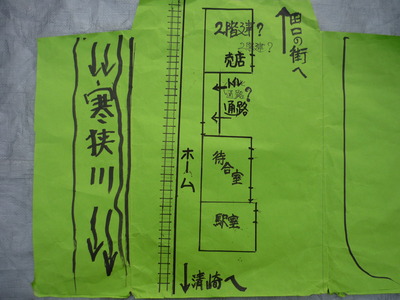 田口の街へ
2階建?
2階建?
売店
通路?
通路
ホーム
待合室
駅室
清崎へ
寒狭川